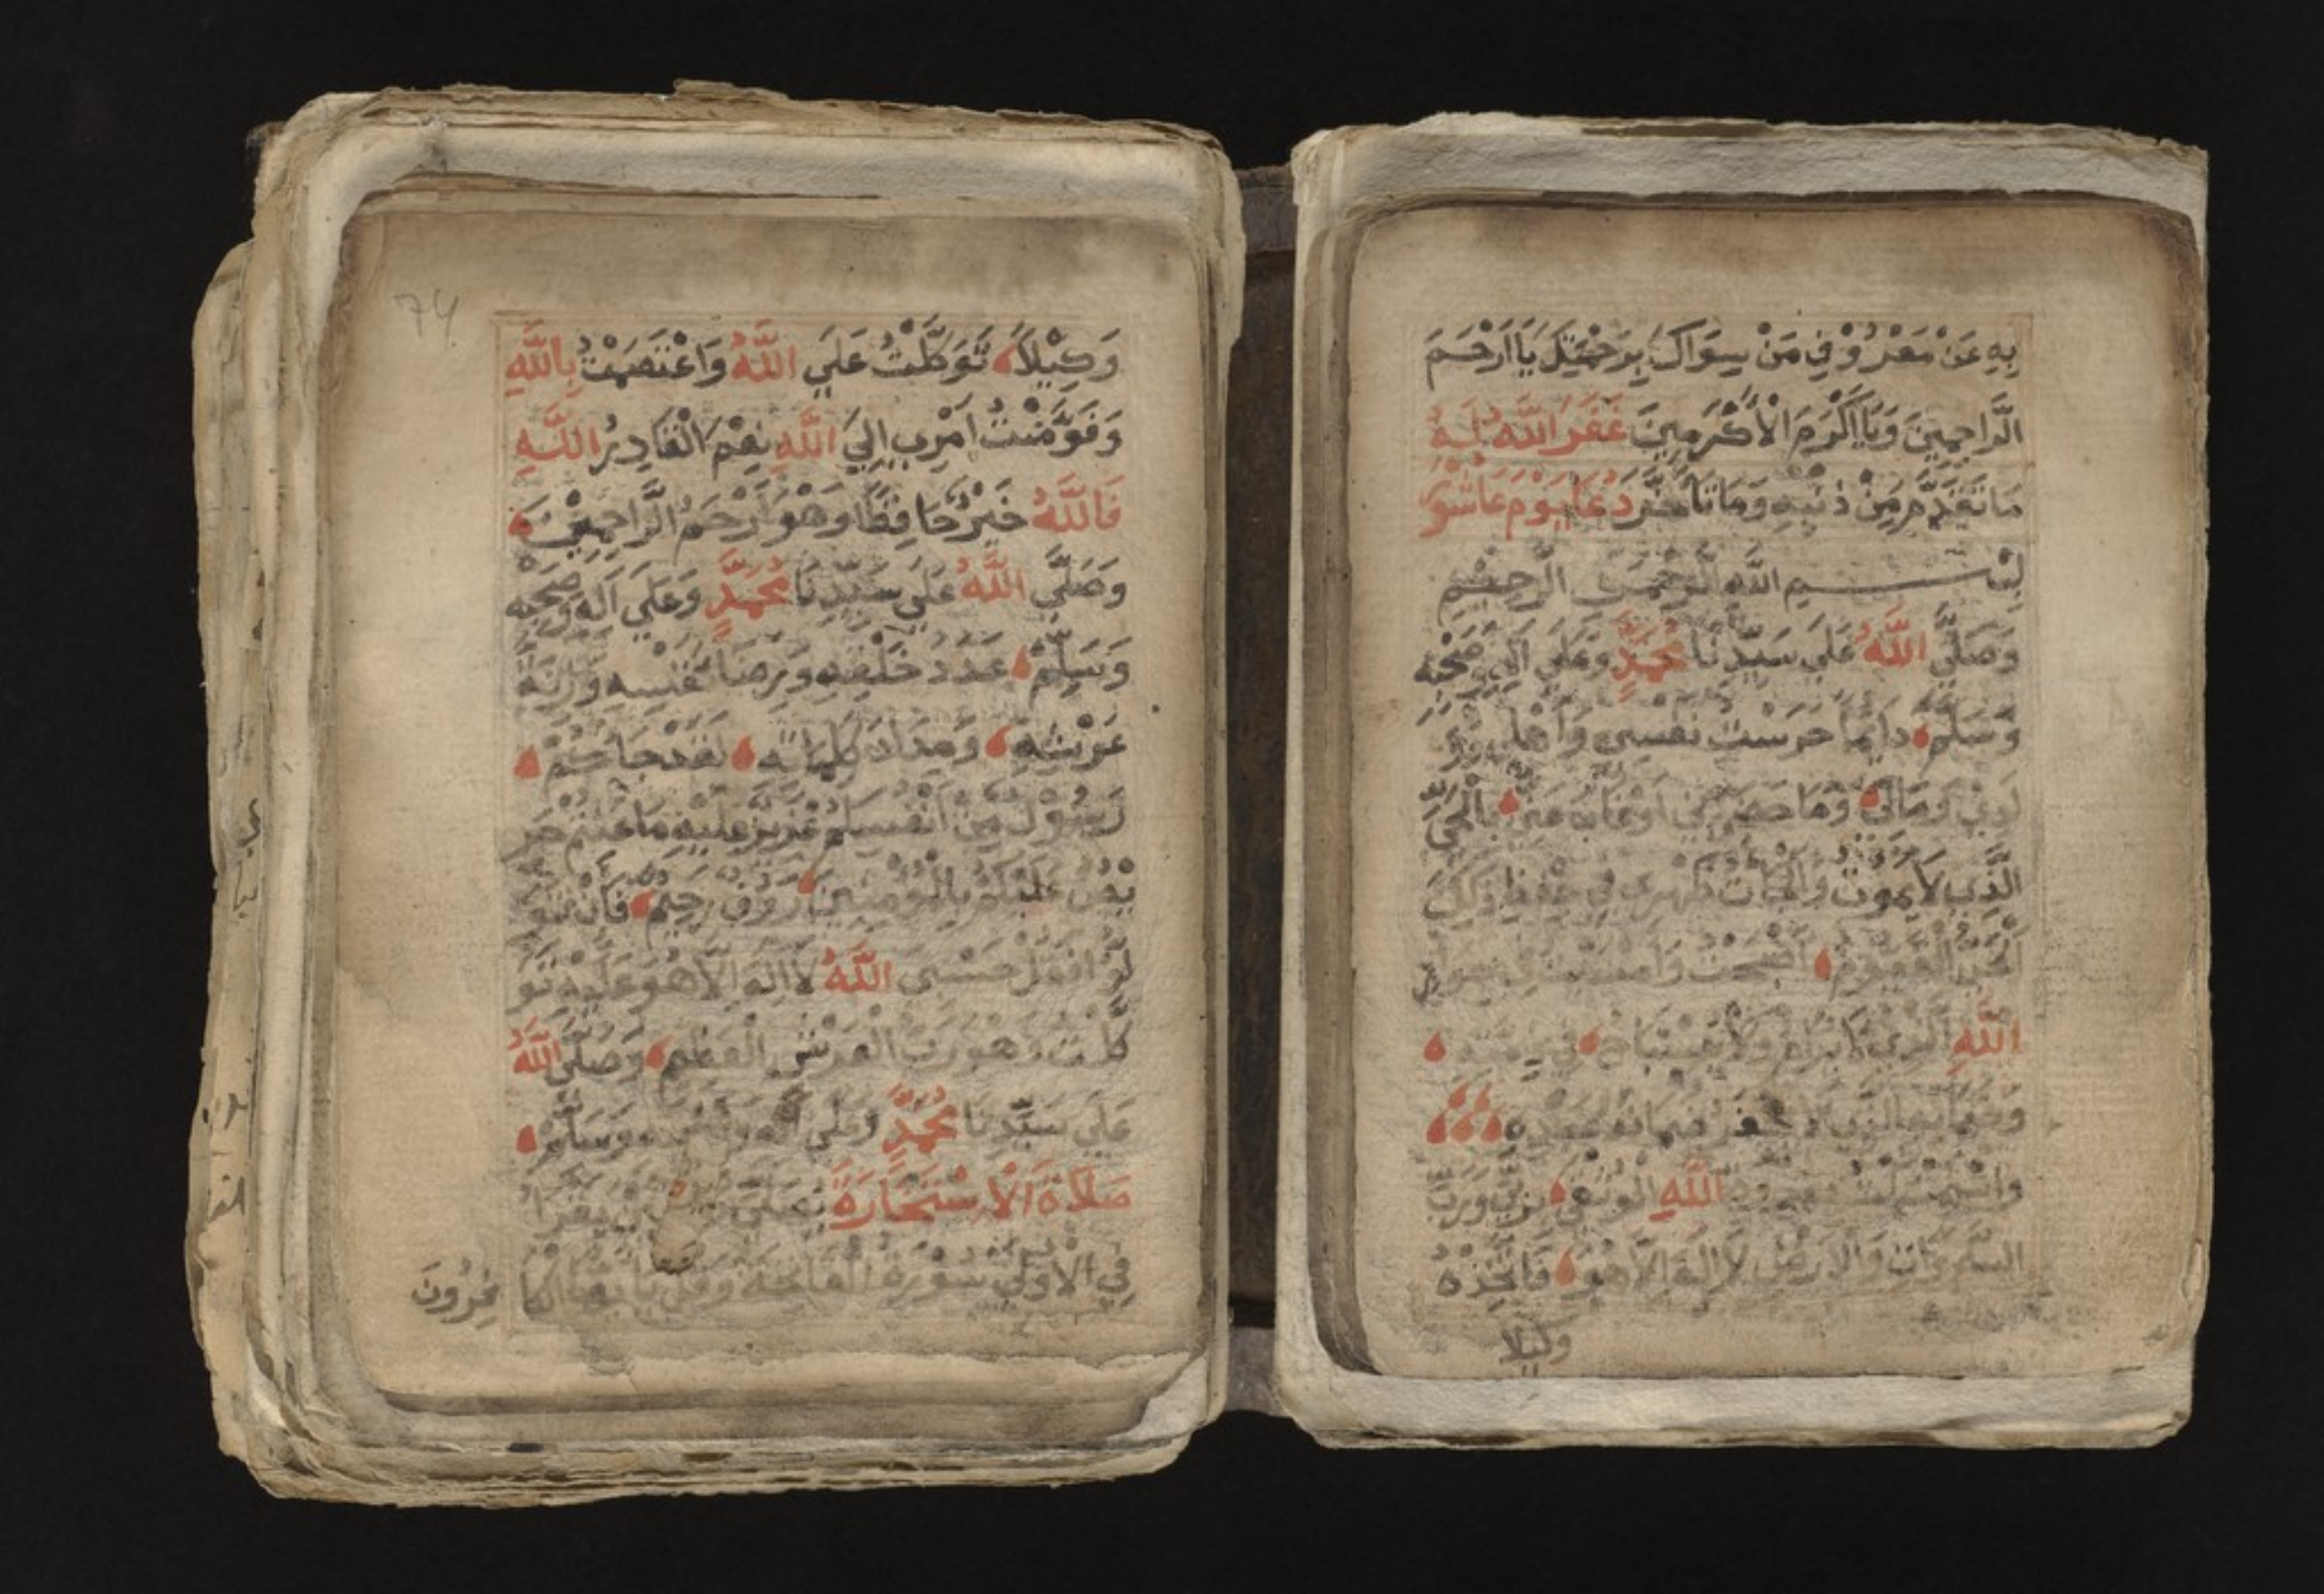 بِهِ عَنْ مَعْرُوْفِ مَنْ سِوَاكَ بِرَحْمَتِكَ يَا اَرْحَمَ
الرَّاحِمِيْنَ وَيَا اَكْرَمَ الْاَكْرَمِيْنَ غَفَرَ اللَّهُ لَهُ
مَا تَقَدَّمَ مِنْ ذَنْبِهِ وَمَا تَاَخَّرَ دُعَا يَوْمِ عَاشُوْرَ
بِسْمِ اللَّهِ الرَّحْمٰنِ الرَّحِيْمِ
وَصَلَّي اللَّهُ عَلَي سَيِّدِنَا مُحَمَّدٍ وَعَلَي اَلِهِ وَصَحْبِهِ
وَسَلَّمَ دَايِمًا حَرَسْتُ نَفْسِي وَاَهْلِي وَوَ
لَدِيْ وَمَالِيْ وَمَا حَضَرَنِي اَوْ غَابَ عَنِّي بِالْحَيِّ
الَّذِي لَا يَمُوْتُ وَاَلْجَاْتُ ظَهْرِي فِي حِفْظِ ذَلِكَ
الْحَيِّ الْقَيُّوْمِ اَصْبَحْتُ وَاَمْسَيْتُ فِي جِوَارِ
اللَّهِ الَّذِي لَا يُرَامُ وَلَا يُسْتَبَاحُ
وَاسْتَمْسَكْتُ اللَّهِ الْوُثْقَي رَبِّي وَرَبُّ
السَّمٰوَاتِ وَالْاَرْضِ لَا اِلَهَ اِلَّا هُوَ فَاتَّخِذْهُ
وكيلا
74
وَكِيْلًا تَوَكَّلْتُ عَلَي اللَّهُ وَاعْتَصَمْتُ بِاللَّهِ
وَفَوَّضْتُ اَمْرِي اِلَي اللَّهِ نِعْمَ الْقَادِرُ اللَّهِ
فَاللَّهُ خَيْرٌ حَافِظًا وَهُوَ اَرْحَمُ الرَّاحِمِيْنَ
وَصَلَّي اللَّهُ عَلَي سَيِّدِنَا مُحَمَّدٍ وَعَلَي اَلِهِ وَصَحْبِهِ
وَسَلِّمْ عَدَدَ خَلْقِهِ وَرِضَا نَفْسِهِ وَزِنَةَ
عَرْشِهِ وَمِدَادَ كَلِمَاتِهِ لَقَدْ جَاكُمْ
رَسُوْلٌ مِنْ اَنْفُسِكُمْ عَزِيْزٌ عَلَيْهِ مَا عَنِتُّمْ حَرِ
يْصٌ عَلَيْكُمْ بِالْمُوْمِنِيْنَ رَوُفٌ رَحِيْمٌ فَاِنْ تَوَ
لَّوْ افَقُلْ حَسْبِيَ اللَّهُ لَا اِلَهَ اِلَّا هُوَ عَلَيْهِ تَوَ
كَّلْتُ وَهُوَ رَبُّ الْعَرْشِ الْعَظِيْمِ وَصَلَّي اللَّهُ
عَلَي سَيِّدِنَا مُحَمَّدٍ وَعَلَي اَلِهِ وَصَحْبِهِ وَسَلَّمَ
صَلَاةُ الْاِسْتِخَارَةِ يُصَلِّي يَقْرَا
فِي الْاُوْلَي سُوْرَةُ الْفَاتِحَةِ وَقُلْ يَا اَيُّهَا الْكَا
فِرُونَ